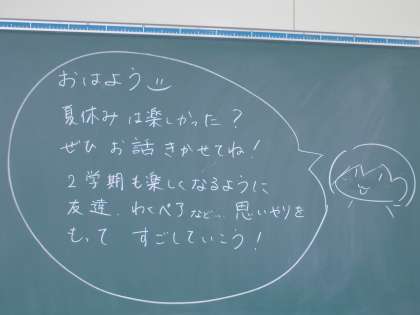 おはよう
夏休みは楽しかった?
ぜひ お話 きかせてね!
2学期も楽しくなるように
友達、わくぺアなど… 思いやりを
もって すごしていこう!